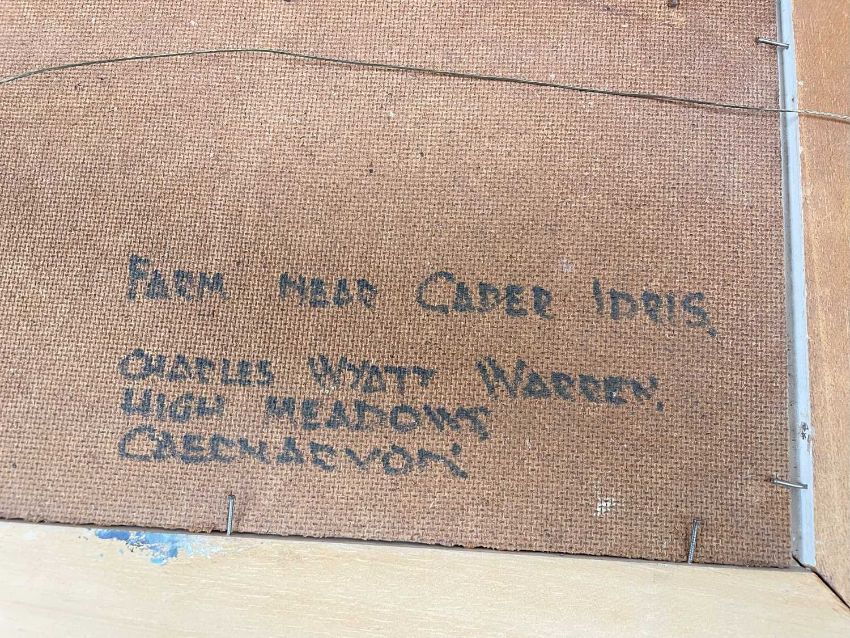 FARM NEAR CADER IDRIS.
CHARLES WYATT WARREN,
HIGH MEADOWS,
CAERNARVON.